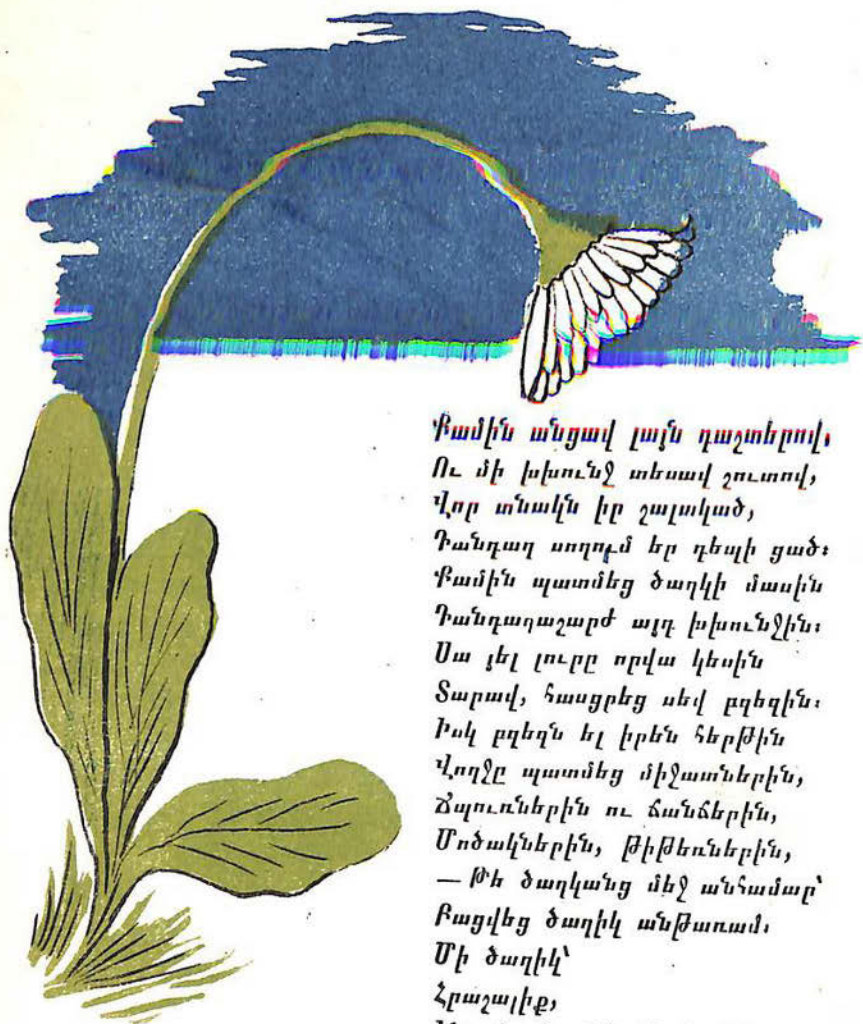 Քամին անցավ լայն դաշտերով,
Ու մի խխունջ տեսավ շուտով,
Վոր տնակն իր շալակած,
Դանդաղ սողում եր դեպի ցած։
Քամին պատմեց ծաղկի մասին
Դանդաղաշարժ այդ խխունջին։
Սա յել լուրը որվա կեսին
Տարավ, հասցրեց սեվ բզեզին։
Իսկ բզեզն ել իրեն հերթին
Վողջը պատմեց միջատներին,
Ճպուռներին ու ճանճերին,
Մոծակներին, թիթեռներին,
— Թե ծաղկանց մեջ անհամար՝
Բացվեց ծաղիկ անթառամ։
Մի ծաղիկ՝
Հրաշալիք,